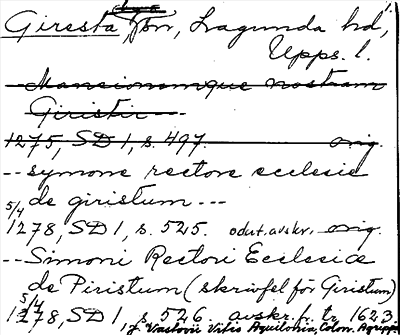 Giresta sn, Lagunda hd,
Upps. l.
-- Mansionemque nostram
Giristir ---
1275, SD 1, s. 497. orig.
-- symone rectore ecclesie
de giristum ---
5/4 1278, SD 1, s. 525. odat. avskr. orig.
-- Simoni Rectori Ecclesiæ
de Piristum (skrivfel för Giristum)
5/4 1278, SD 1, s. 526. avskr. fr. tr. 1623
i J. Vastovii Vitis Aquilonia, Colon. Agripp.